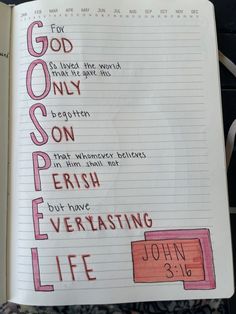 JAN FEB MAR APR MAY JUN JUL AUG SEP OCT NOV DEC
GOSPEL
For
GOD
So loved the world
that He gave His
ONLY
begotten
SON
that whomever believes
in Him shall not
PERISH
but have
EVERLASTING
LIFE
JOHN
3:16